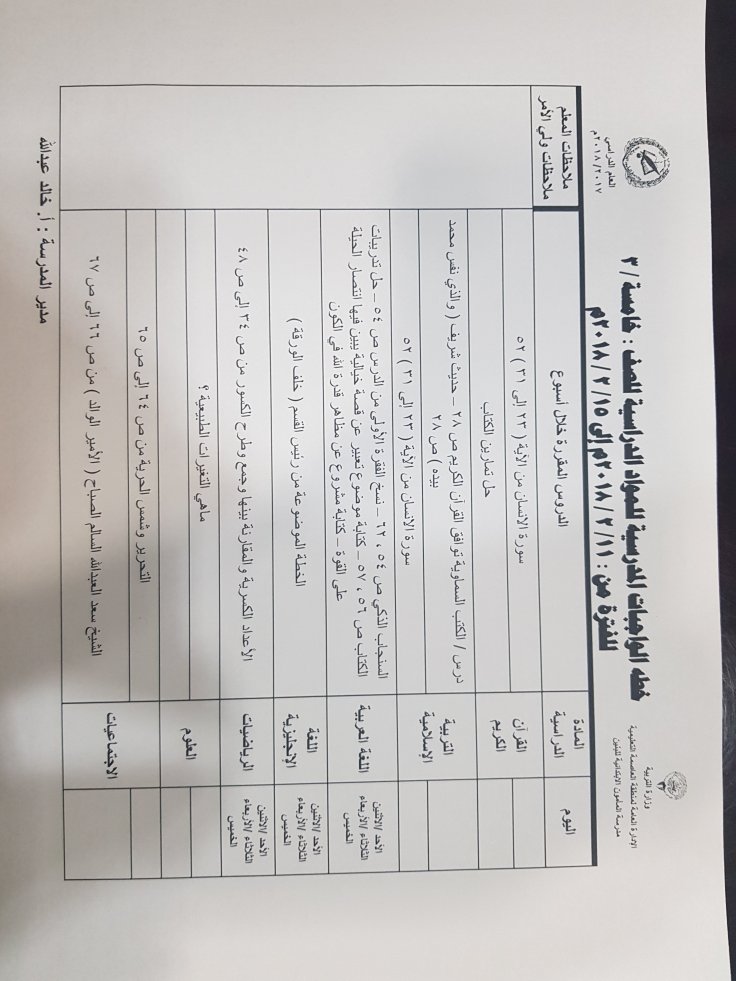 وزارة التربية
الإدارة العامة لمنطقة العاصمة التعليمية
مدرسة المأمون الابتدائية للبنين
خطه الواجبات المدرسية للمواد الدراسية للصف : خامسة / ٣
للفترة من : ١١ / ٢ / ٢٠١٨م إلى ١٥ / ٢ / ٢٠١٨م
العام الدراسي
٢٠١٧ / ٢٠١٨م
اليوم
المادة الدراسية
الدروس المقررة خلال أسبوع
ملاحظات المعلم
ملاحظات ولي الأمر
القرآن الكريم
سورة الانسان من الآية ( ٢٣ إلى ٣١ ) ٥٢
حل تمارين الكتاب
التربية الإسلامية
درس / الكتب السماوية توافق القرآن الكريم ص ٢٨ – حديث شريف ( والذي نفس محمد
بيده ) ص ٢٨
سورة الانسان من الآية ( ٢٣ إلى ٣١ ) ٥٢
الأحد / الاثنين
الثلاثاء / الأربعاء
الخميس
اللغة العربية
السنجاب الذكي ص ٥٤ ، ٦٢ – نسخ الفقرة الأولى من الدرس ص ٥٤ – حل تدريبات
الكتاب ص ٥٦ ، ٥٧ – كتابة موضوع تعبير عن قصة خيالية يبين فيها انتصار الحيلة
على القوة – كتابة مشروع عن مظاهر قدرة الله في الكون
الأحد / الاثنين
الثلاثاء / الأربعاء
الخميس
اللغة الإنجليزية
الخطة الموضوعة من رئيس القسم ( خلف الورقة )
الأحد / الاثنين
الثلاثاء / الأربعاء
الخميس
الرياضيات
الأعداد الكسرية والمقارنة بينها وجمع وطرح الكسور من ص ٣٤ إلى ص ٤٨
العلوم
ماهي التغيرات الطبيعية ؟
الاجتماعيات
التحرير وشمس الحرية من ص ٦٤ إلى ص ٦٥
الشيخ سعد العبدالله السالم الصباح ( الأمير الوالد ) من ص ٦٦ إلى ص ٦٧
مدير المدرسة : أ. خالد عبدالله